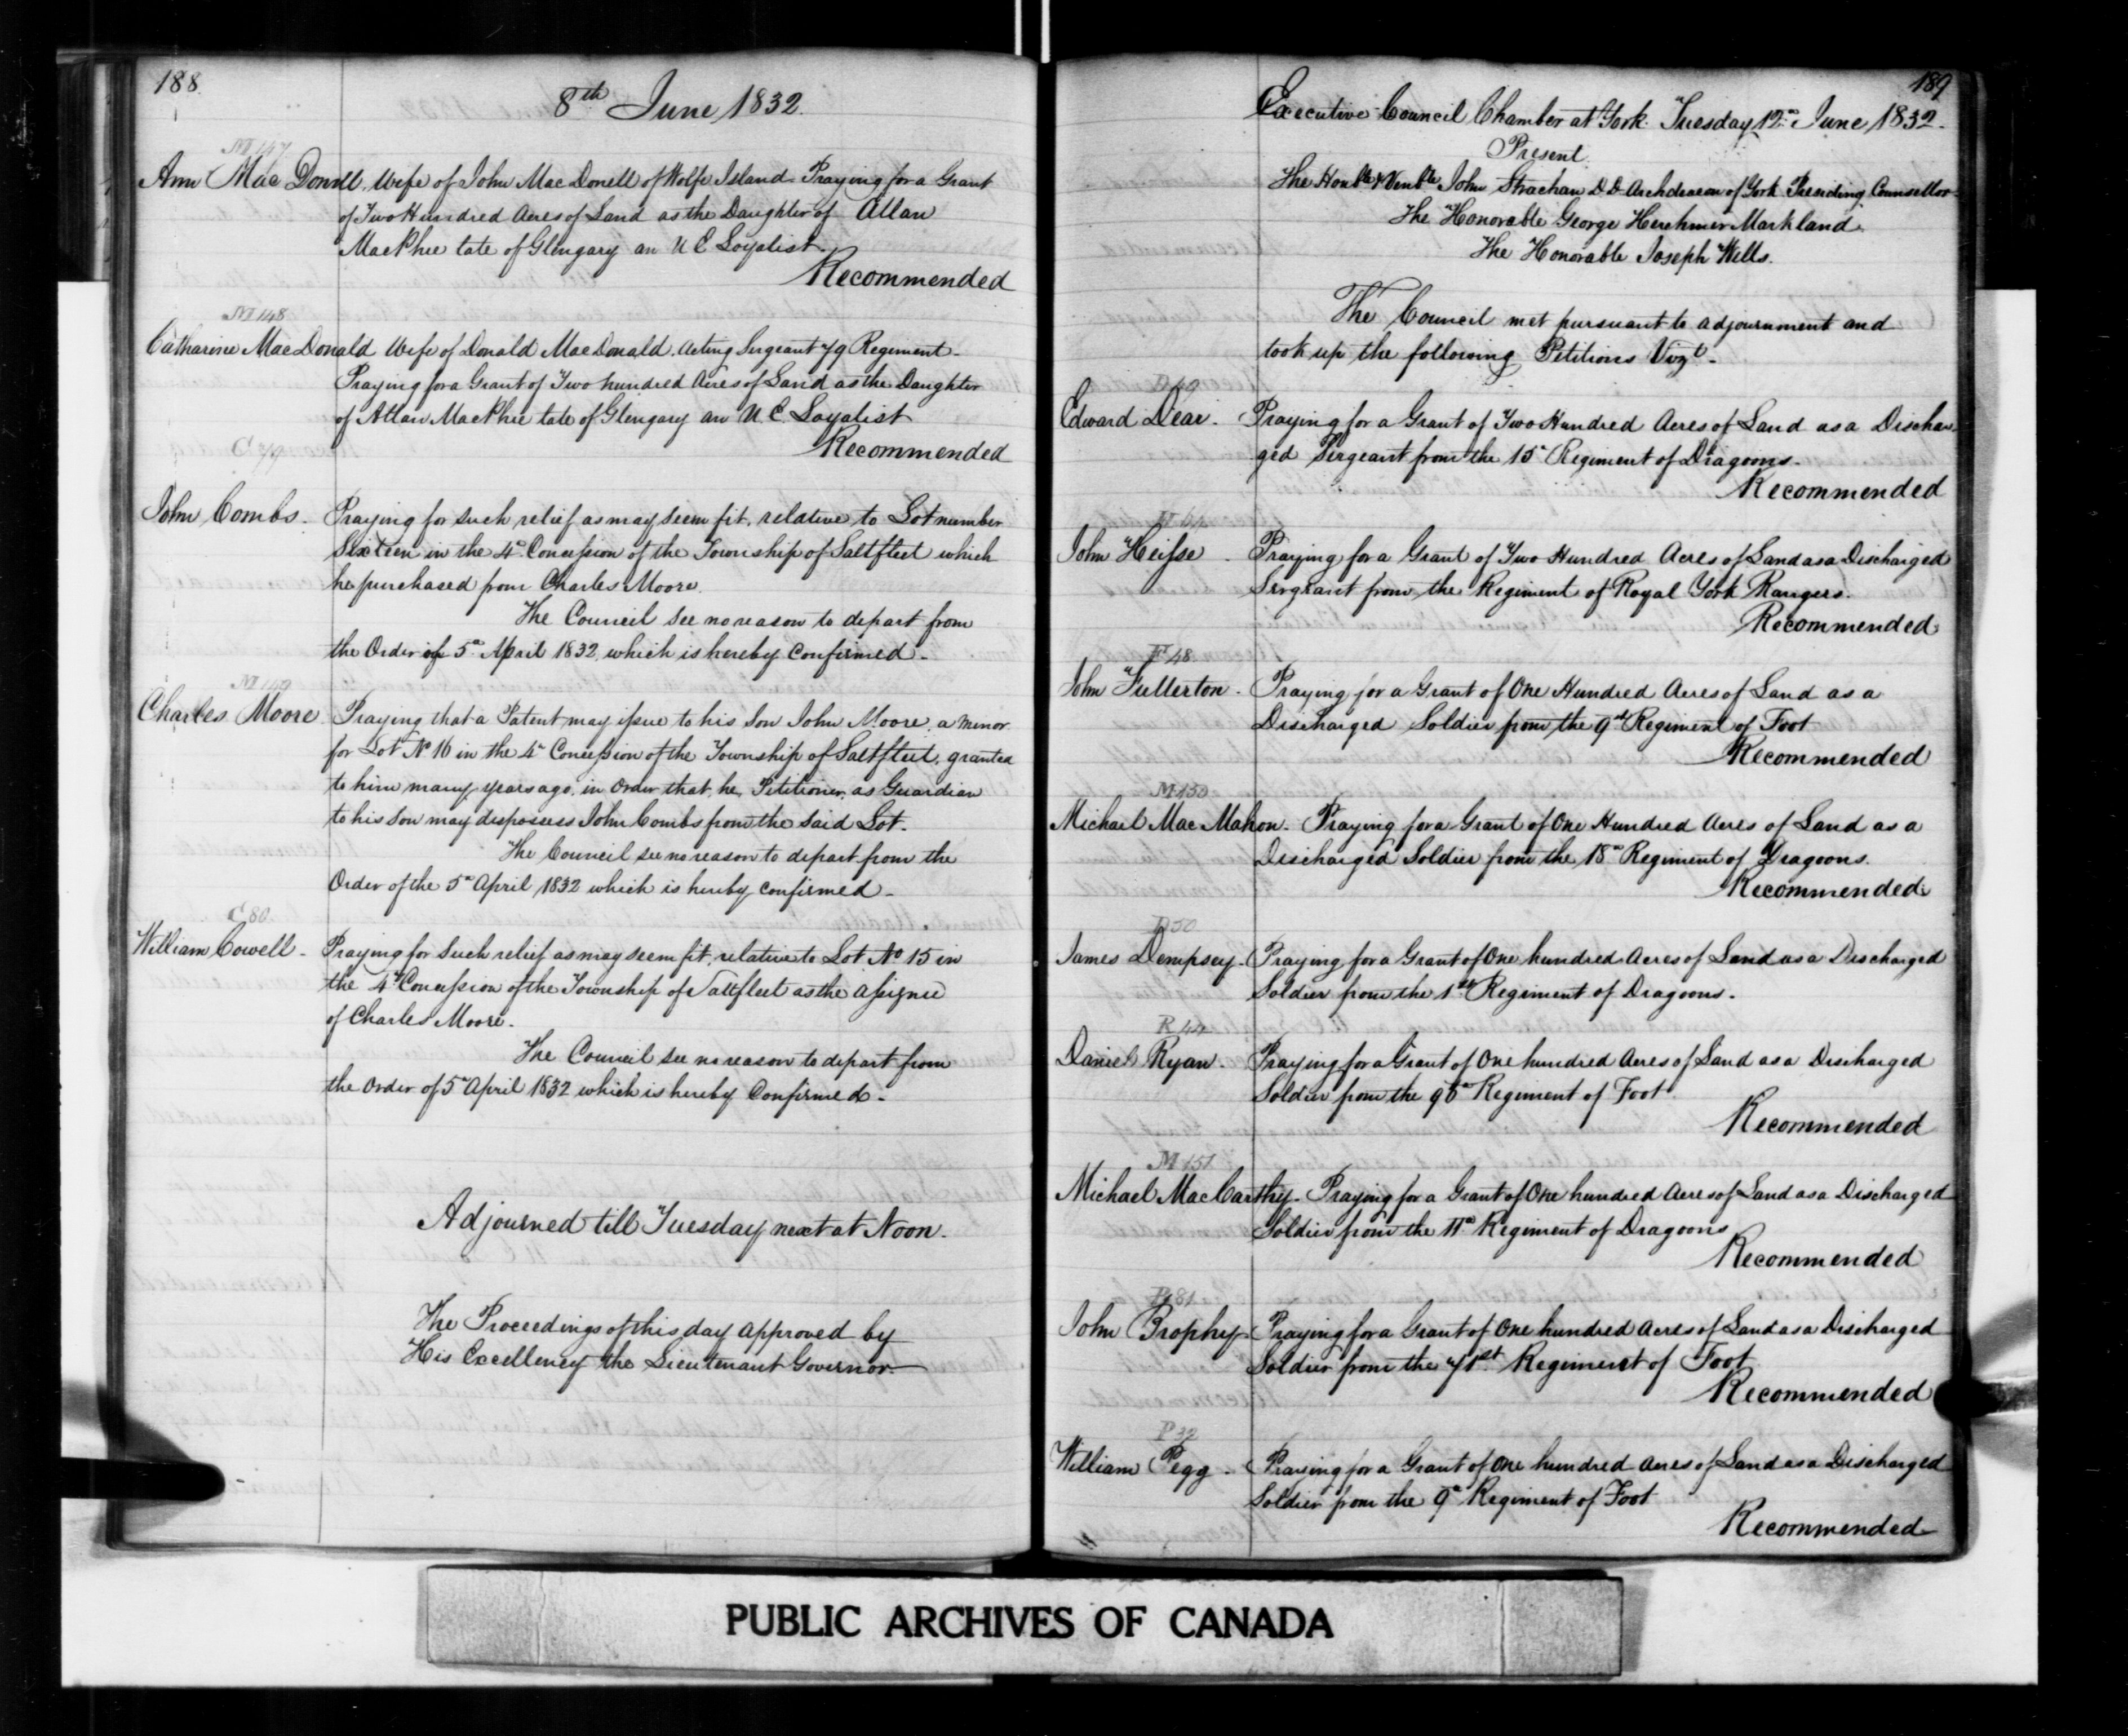 188
8th June 1832.
M 147
Ann Mac Donell, Wife of John Mac Donell of Wolfe Island Praying for a Grant
of Two Hundred Acres of Land as the Daughter of Allan
MacPhee late of Glengary an U E Loyalist.
Recommended
M 148
Catharine MacDonald Wife of Donald MacDonald, Acting Sergeant 79 Regiment -
Praying for a Grant of Two hundred Acres of Land as the Daughter
of Allan MacPhee late of Glengary an U. E Loyalist
Recommended
C 79
John Combs - Praying for such relief as may seem fit, relative to Lot number
Sixteen in the 4th Concession of the Township of Saltfleet which
he purchased from Charles Moore.
The Council see no reason to depart from
the Order of 5th April 1832, which is hereby Confirmed -
M 149
Charles Moore Praying that a Patent may issue to his Son John Moore, a minor
for Lot No 16 in the 4th Concession of the Township of Saltfleet, granted
to him many years ago, in Order that, he, Petitioner, as Guardian
to his Son may dispossess John Combs from the Said Lot -
The Council see no reason to depart from the
Order of the 5th April 1832 which is hereby Confirmed -
C 80
William Cowell - Praying for Such relief as may seem fit, relative to Lot No 15 in
the 4th Concession of the Township of Saltfleet as the Assignee
of Charles Moore -
The Council see no reason to depart from
the Order of 5th April 1832 which is hereby Confirmed -
Adjourned till Tuesday next at Noon -
The Proceedings of this day approved by
His Excellency the Lieutenant Governor -
189
Executive Council Chamber at York Tuesday 12th June 1832 -
Present
The Honble & Venble John Strachan D.D. Archdeacon of York Presiding Counsellor -
The Honorable George Herchmer Markland
The Honorable Joseph Wells.
The Council met pursuant to adjournment and
took up the following Petitions Vizt -
D 49
Edward Dear - Praying for a Grant of Two Hundred Acres of Land as a Dischar-
ged Sergeant from the 15th Regiment of Dragoons -
Recommended
H 64
John Heisse - Praying for a Grant of Two Hundred Acres of Land as a Discharged
Sergeant from the Regiment of Royal York Rangers.
Recommended
F 48
John Fullerton - Praying for a Grant of One Hundred Acres of Land as a
Discharged Soldier from the 9th Regiment of Foot
Recommended
M 150
Michael Mac Mahon - Praying for a Grant of One Hundred Acres of Land as a
Discharged Soldier from the 18th Regiment of Dragoons.
Recommended
D 50
James Dempsey - Praying for a Grant of One hundred Acres of Land as a Discharged
Soldier from the 1st Regiment of Dragoons -
R 44
Daniel Ryan - Praying for a Grant of One hundred Acres of Land as a Discharged
Soldier from the Regiment of Foot
Recommended
M 151
Michael MacCarthy - Praying for a Grant of One hundred Acres of Land as a Discharged
Soldier from the 11th Regiment of Dragoons
Recommended
B 81
John Brophy - Praying for a Grant of One hundred Acres of Land as a Discharged
Soldier from the 71st Regiment of Foot
Recommended
P 32
William Pegg - Praying for a Grant of One hundred Acres of Land as a Discharged
Soldier from the 9th Regiment of Foot
Recommended
PUBLIC ARCHIVES OF CANADA